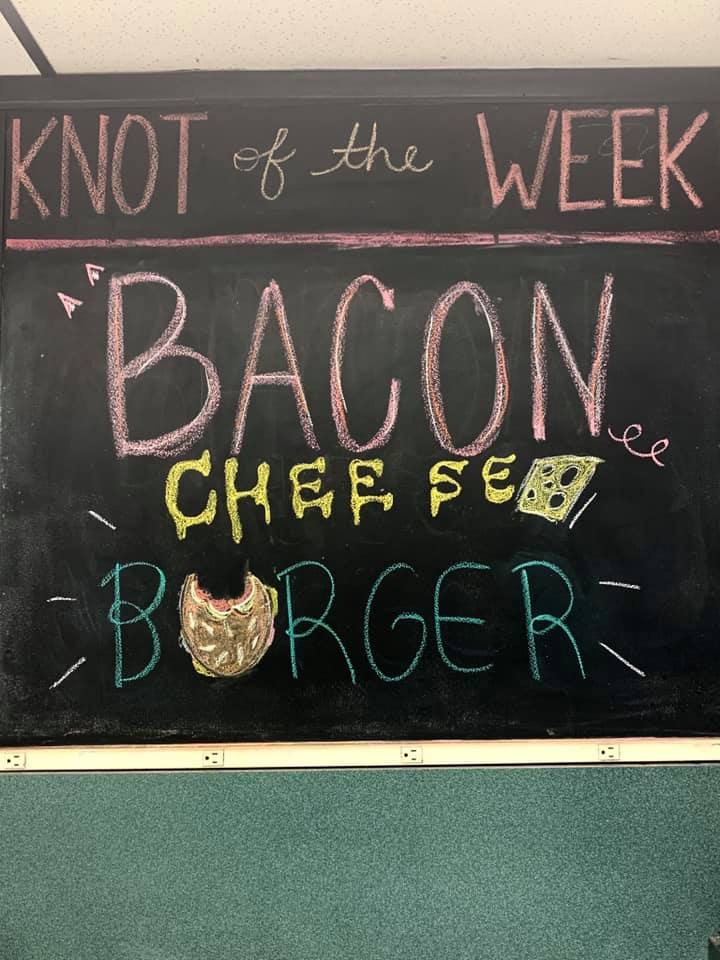 KNOT of the WEEK
BACON
CHEESE
BURGER